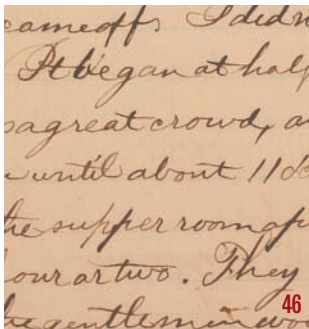 came off. I didn
It began at half
a great crowd, a
until about 11 oc
the supper room of
our or two. They
he gentlemen wou
46